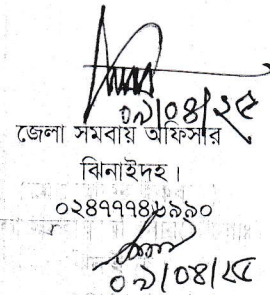 ০৯/০৪/২৫
জেলা সমবায় অফিসার
ঝিনাইদহ।
০২৪৭৭৭৪৮৯৯০
০৯/০৪/২৫